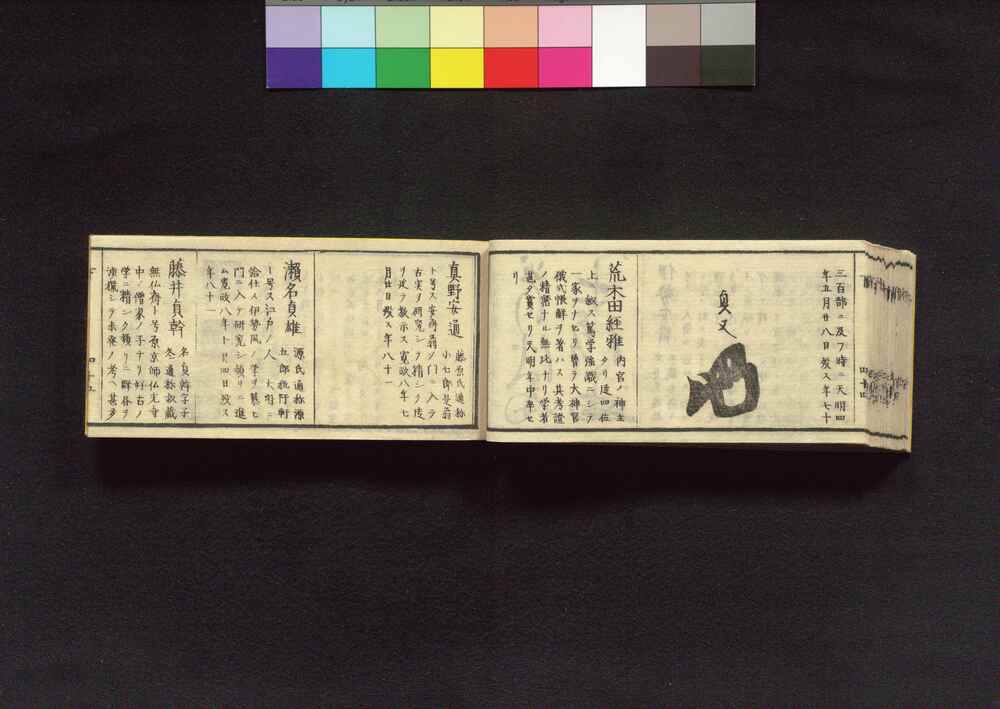 三百部ニ及フ時ニ天明四
年五月廿八日歿ス年七十
貞丈
荒木田経雅
内宮ノ神主
タリ従四位
上ニ叙ス篤学強識ニシテ
一家ヲナセリ曽テ大神宮
儀式帳解ヲ著ハス其考證
ノ精密ナル無比ナリ学者
甚タ賞セリ天明年中卒セ
リ
真野安通
藤原氏通称
小七郎是翁
ト号ス安斎翁ノ門ニ入テ
古実ヲ研究シク精シク後
ヲ送ラ教示ス寛政八年七
月廿日歿ス年八十一
瀬名貞雄
源氏通称源
五郎狐阡軒
ト号ス江戸ノ人
大明ニ
給仕ス伊勢風ノ学ヲ慕ヒ
門ニ入テ研究シ頗リニ進
ム寛政八年十月四日歿ス
年八十一
藤井貞幹
名貞幹字子
冬通称叔蔵
無仏斎ト号ス京師仏光寺
中ノ僧家ノ子ナリ好古ノ
学ニ精シク頗リニ群書ヲ
渉猟シテ未発ノ考へ甚多